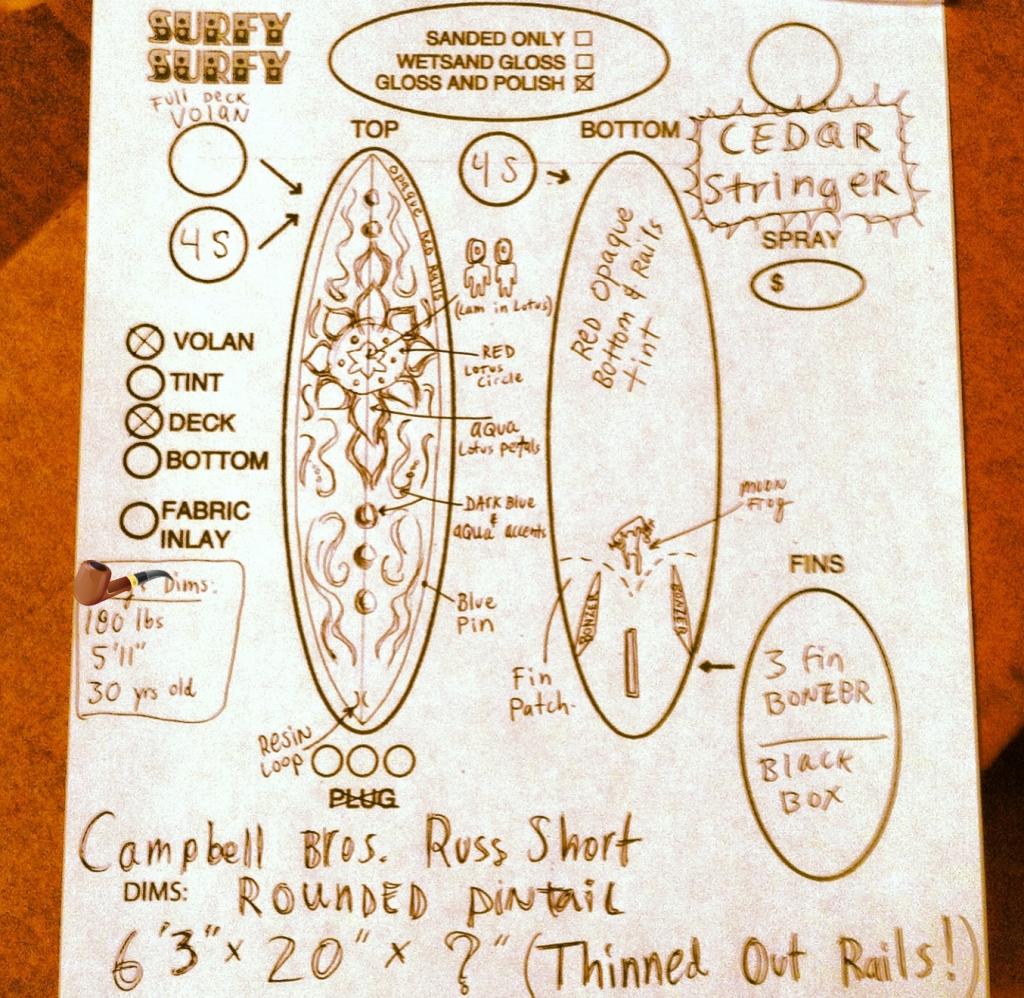 SURFY
SURFY
SANDED ONLY
WETSAND GLOSS
GLOSS AND POLISH
FULL DECK
VOLAN
TOP
4 S
BOTTOM
CEDAR
StringER
4 S
SPRAY
$
Opaque Red Rails
Red Opaque
Bottom & Rails
tint
(Lam in Lotus)
VOLAN
RED
LOTUS
Circle
TINT
DECK
aqua
Lotus petals
BOTTOM
FABRIC
INLAY
DARK Blue
&
aqua accents
MOON
Frog
FINS
Dims:
180 lbs
5'11"
30 yrs old
Blue
Pin
BONZER
BONZER
Fin
Patch
3 fin
BONZER
Black
BOX
RESIN
Loop
PLUG
Campbell Bros. Russ Short
DIMS: ROUNDED pintail
6'3" x 20" x ?" (Thinned Out Rails!)